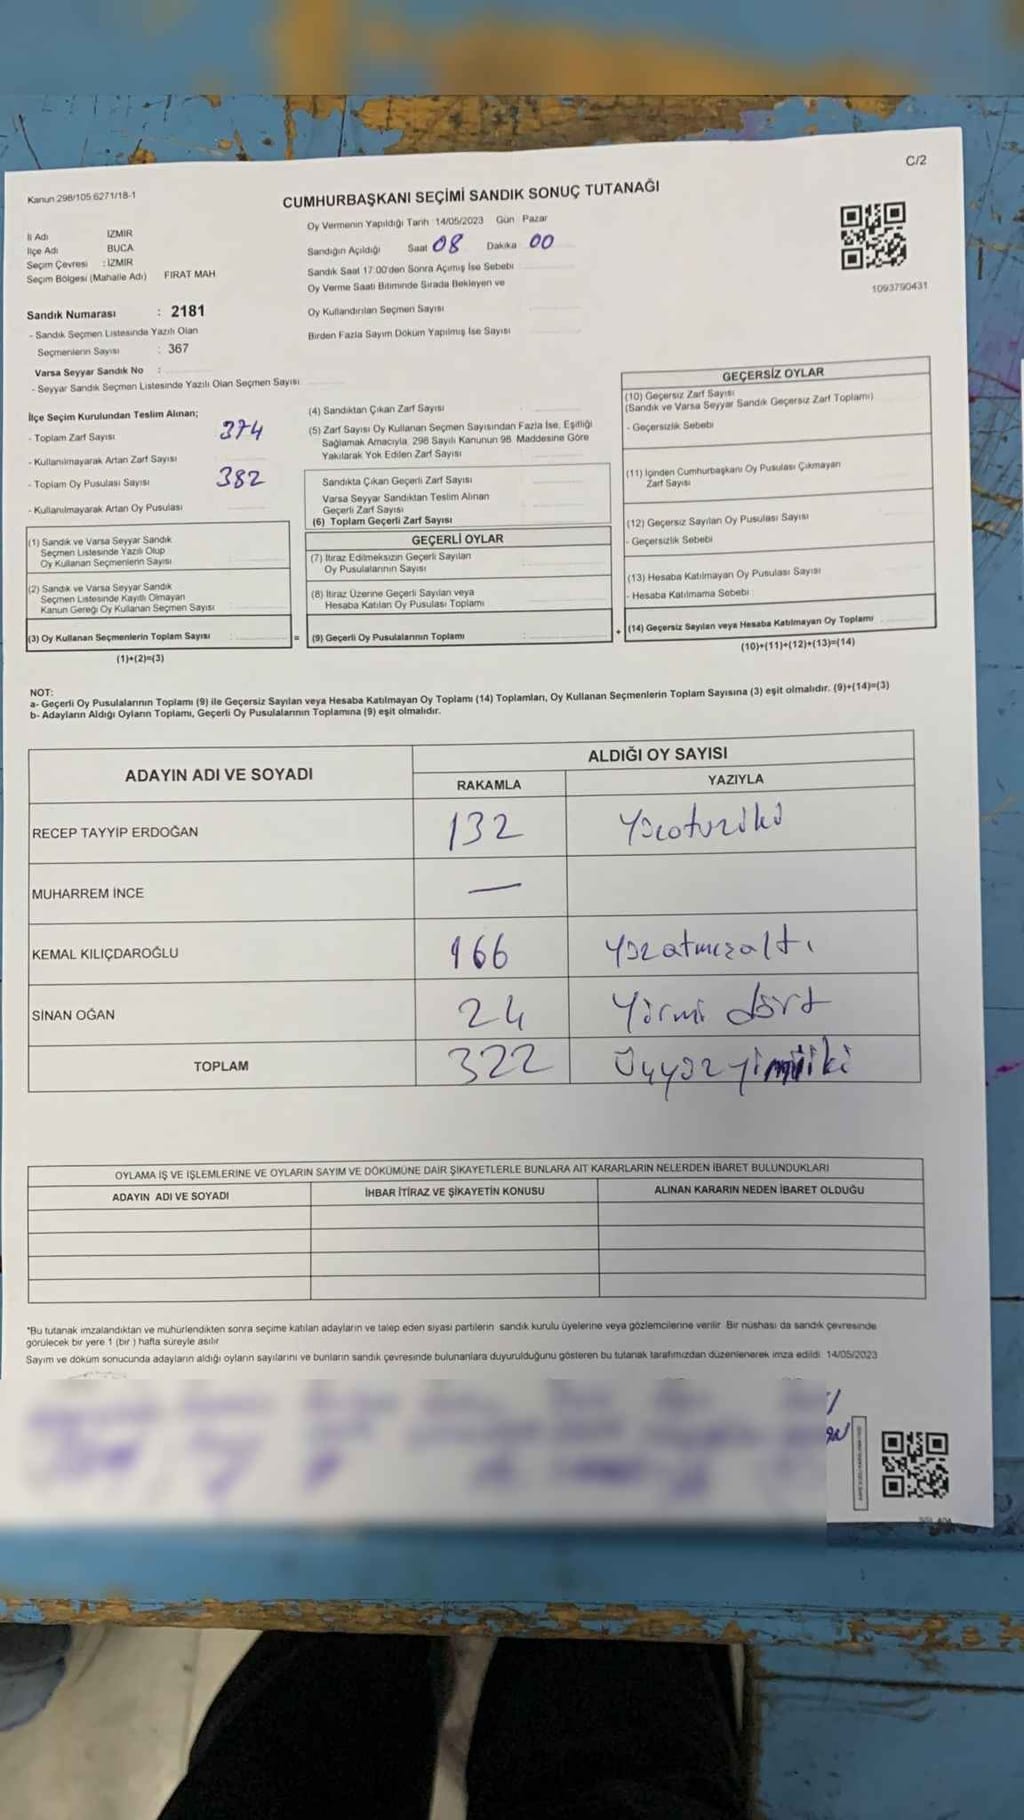 C/2
Kanun 298/105 6271/18-1
CUMHURBAŞKANI SEÇİMİ SANDIK SONUÇ TUTANAĞI
İl Adı İZMİR
İlçe Adı BUCA
Seçim Çevresi : İZMİR
Seçim Bölgesi (Mahalle Adı) FIRAT MAH
Oy Vermenin Yapıldığı Tarih 14/05/2023 Gün Pazar
Sandığın Açıldığı Saat 08 Dakika 00
Sandık Saat 17:00'den Sonra Açımış İse Sebebi
Oy Verme Saati Bitiminde Sırada Bekleyen ve
Oy Kullandırılan Seçmen Sayısı
Birden Fazla Sayım Döküm Yapılmış İse Sayısı
1093790431
Sandık Numarası : 2181
- Sandık Seçmen Listesinde Yazılı Olan
Seçmenlerin Sayısı : 367
Varsa Seyyar Sandık No :
- Seyyar Sandık Seçmen Listesinde Yazılı Olan Seçmen Sayısı
İlçe Seçim Kurulundan Teslim Alınan;
- Toplam Zarf Sayısı 374
- Kullanılmayarak Artan Zarf Sayısı
- Toplam Oy Pusulası Sayısı 382
- Kullanılmayarak Artan Oy Pusulası
(1) Sandık ve Varsa Seyyar Sandık
Seçmen Listesinde Yazılı Olup
Oy Kullanan Seçmenlerin Sayısı
(2) Sandık ve Varsa Seyyar Sandık
Seçmen Listesinde Kayıtlı Olmayan
Kanun Gereği Oy Kullanan Seçmen Sayısı
(3) Oy Kullanan Seçmenlerin Toplam Sayısı :
(1)+(2)=(3)
(4) Sandıktan Çıkan Zarf Sayısı
(5) Zarf Sayısı Oy Kullanan Seçmen Sayısından Fazla İse, Eşitliği
Sağlamak Amacıyla, 298 Sayılı Kanunun 98. Maddesine Göre
Yakılarak Yok Edilen Zarf Sayısı
Sandıkta Çıkan Geçerli Zarf Sayısı
Varsa Seyyar Sandıktan Teslim Alınan
Geçerli Zarf Sayısı
(6) Toplam Geçerli Zarf Sayısı
GEÇERLİ OYLAR
(7) İtiraz Edilmeksizin Geçerli Sayılan
Oy Pusulalarının Sayısı
(8) İtiraz Üzerine Geçerli Sayılan veya
Hesaba Katılan Oy Pusulası Toplamı
= (9) Geçerli Oy Pusulalarının Toplamı :
GEÇERSİZ OYLAR
(10) Geçersiz Zarf Sayısı
(Sandık ve Varsa Seyyar Sandık Geçersiz Zarf Toplamı)
- Geçersizlik Sebebi
(11) İçinden Cumhurbaşkanı Oy Pusulası Çıkmayan
Zarf Sayısı
(12) Geçersiz Sayılan Oy Pusulası Sayısı
- Geçersizlik Sebebi
(13) Hesaba Katılmayan Oy Pusulası Sayısı
- Hesaba Katılmama Sebebi
+ (14) Geçersiz Sayılan veya Hesaba Katılmayan Oy Toplamı
(10)+(11)+(12)+(13)=(14)
NOT:
a- Geçerli Oy Pusulalarının Toplamı (9) ile Geçersiz Sayılan veya Hesaba Katılmayan Oy Toplamı (14) Toplamları, Oy Kullanan Seçmenlerin Toplam Sayısına (3) eşit olmalıdır. (9)+(14)=(3)
b- Adayların Aldığı Oyların Toplamı, Geçerli Oy Pusulalarının Toplamına (9) eşit olmalıdır.
ADAYIN ADI VE SOYADI
ALDIĞI OY SAYISI
RAKAMLA YAZIYLA
RECEP TAYYİP ERDOĞAN 132 Yüzotuziki
MUHARREM İNCE —
KEMAL KILIÇDAROĞLU 166 Yüzatmışaltı
SİNAN OĞAN 24 Yirmi dört
TOPLAM 322 Üçyüz yirmiiki
OYLAMA İŞ VE İŞLEMLERİNE VE OYLARIN SAYIM VE DÖKÜMÜNE DAİR ŞİKAYETLERLE BUNLARA AİT KARARLARIN NELERDEN İBARET BULUNDUKLARI
ADAYIN ADI VE SOYADI İHBAR İTİRAZ VE ŞİKAYETİN KONUSU ALINAN KARARIN NEDEN İBARET OLDUĞU
*Bu tutanak imzalandıktan ve mühürlendikten sonra seçime katılan adayların ve talep eden siyasi partilerin sandık kurulu üyelerine veya gözlemcilerine verilir. Bir nüshası da sandık çevresinde
görülecek bir yere 1 (bir ) hafta süreyle asılır
Sayım ve döküm sonucunda adayların aldığı oyların sayılarını ve bunların sandık çevresinde bulunanlara duyurulduğunu gösteren bu tutanak tarafımızdan düzenlenerek imza edildi. 14/05/2023